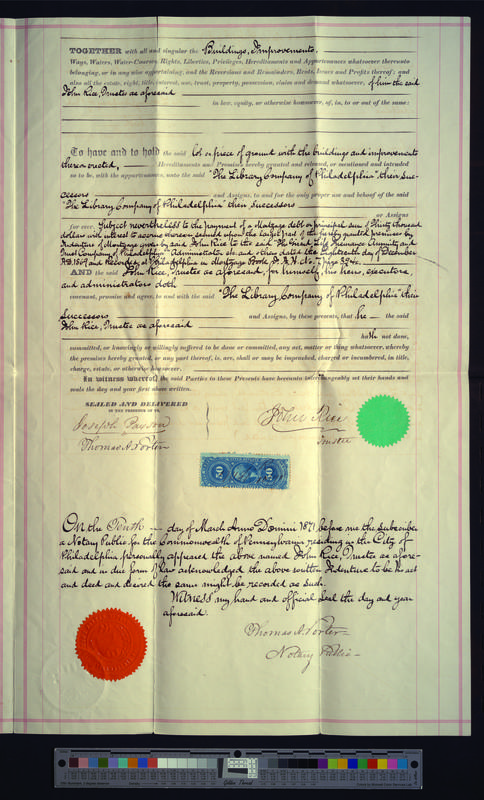 TOGETHER with all and singular the Buildings, Improvements,
Ways, Waters, Water-Courses, Rights, Liberties, Privileges, Hereditaments and Appurtenances whatsoever thereunto
belonging, or in any wise appertaining, and the Reversions and Remainders, Rents, Issues and Profits thereof; and
also all the estate, right, title, interest, use, trust, property, possession, claim and demand whatsoever, of him the said
John Rice, Trustee as aforesaid
in law, equity, or otherwise howsoever, of, in, to or out of the same:
To have and to hold the said lot or piece of ground with the buildings and improvements
thereon erected, Hereditaments and Premises hereby granted and released, or mentioned and intended
so to be, with the appurtenances, unto the said "The Library Company of Philadelphia" their Suc-
cessors and Assigns, to and for the only proper use and behoof of the said
"The Library Company of Philadelphia" their Successors
or Assigns
for ever. Subject nevertheless to the payment of a Mortgage debt or principal sum of Thirty thousand
dollars with interest to accrue thereon secured upon the larger part of the hereby granted premises by
Indenture of Mortgage given by said John Rice to the said "The Girard Life Insurance Annuity and
Trust Company of Philadelphia" Administrators etc. and others dated the Eighteenth day of December
A.D. 1869 and Recorded at Philadelphia in Mortgage Book page
AND the said John Rice, Trustee as aforesaid, for himself, his heirs, executors,
and administrators doth
covenant, promise and agree, to and with the said "The Library Company of Philadelphia" their
Successors and Assigns, by these presents, that he the said
John Rice, Trustee as aforesaid
hath not done,
committed, or knowingly or willingly suffered to be done or committed, any act, matter or thing whatsoever, whereby
the premises hereby granted, or any part thereof, is, are, shall or may be impeached, charged or incumbered, in title,
charge, estate, or otherwise howsoever.
In witness whereof, the said Parties to these Presents have hereunto interchangeably set their hands and
seals the day and year first above written.
SEALED AND DELIVERED
IN THE PRESENCE OF US.
John Rice
Trustee
Joseph Paxson
Thomas A. Porter
50 50
On the Tenth day of March Anno Domini 1871 before me the subscriber
a Notary Public for the Commonwealth of Pennsylvania residing in the City of
Philadelphia personally appeared the above named John Rice, Trustee as afore-
said and in due form of law acknowledged the above written Indenture to be his act
and deed and desired the same might be recorded as such.
Witness my hand and official seal the day and year
aforesaid.
Thomas A. Porter
Notary Public